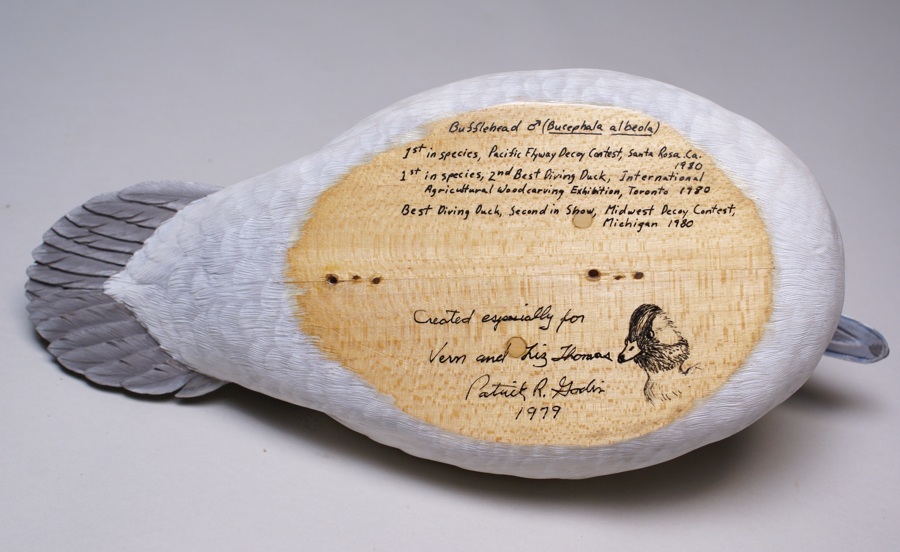 Bufflehead ♂ (Bucephala albeola)
1st in species, Pacific Flyway Decoy Contest, Santa Rosa. Ca.
1980
1st in species, 2nd Best Diving Duck, International
Agricultural Woodcarving Exhibition, Toronto 1980
Best Diving Duck, Second in Show, Midwest Decoy Contest,
Michigan 1980
Created especially for
Vern and Liz Thomas
Patrick R. Godin
1979